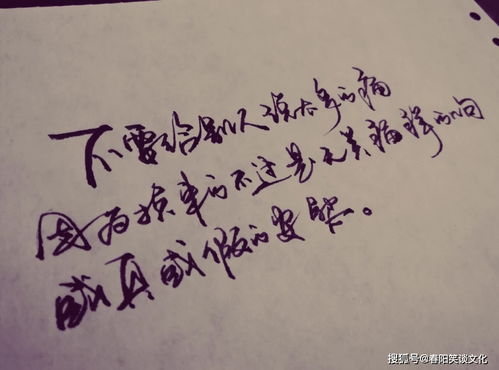 不需给别人说太多的痛
因为换来的不过是无关痛痒的问
或真或假的安慰。
搜狐号@春阳笑谈文化